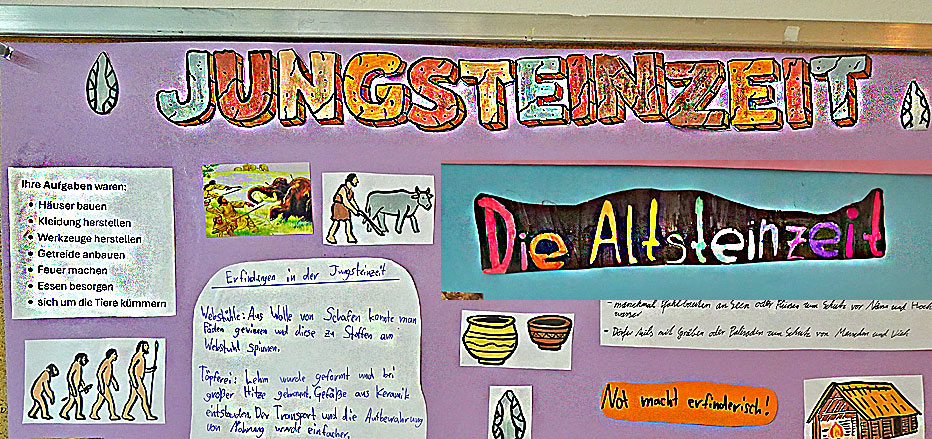 JUNGSTEINZEIT
Ihre Aufgaben waren:
• Häuser bauen
• Kleidung herstellen
• Werkzeuge herstellen
• Getreide anbauen
• Feuer machen
• Essen besorgen
• sich um die Tiere kümmern
Die Altsteinzeit
Erfindungen in der Jungsteinzeit
Webstühle: Aus Wolle von Schafen konnte man
Fäden gewinnen und diese zu Stoffen am
Webstuhl spinnen.
Töpferei: Lehm wurde geformt und bei
großer Hitze gebrannt. Gefäße aus Keramik
entstanden. Der Transport und die Aufbewahrung
von Nahrung wurde einfacher.
- manchmal Pfahlbauten an Seen oder Flüssen zum Schutz vor Nässe und Hoch
wasser
- Dörfer teils mit Gräben oder Palisaden zum Schutz von Menschen und Vieh
Not macht erfinderisch!